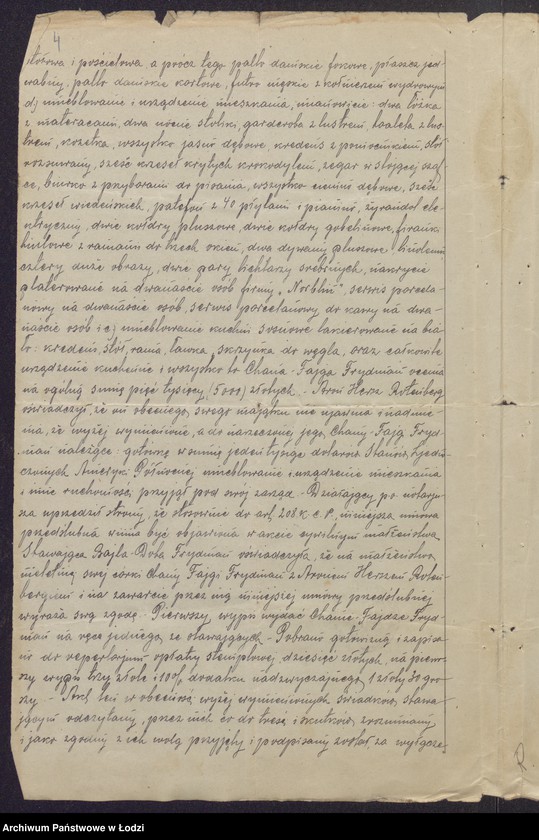 4
stołowa i pościelowa a prócz tego palto damskie fokowe, płaszcz jed-
wabny, palto damskie kortowe, futro męskie z kołnierzem wydrowym
d) umeblowanie i urządzenie mieszkania, mianowicie: dwa łóżka
z materacami, dwa nocne stoliki, garderoba z lustrem, toaleta z lus-
trem, kozetka, wszystko jasne dębowe, kredens z pomocnikiem, stół
rozsuwany, sześć krzeseł krytych krokodylem, zegar w stojącej szaf-
ce, biurko z przyborami do pisania, wszystko ciemne dębowe, sześć
krzeseł wiedeńskich, patefon z 40 płytami i pianino, żyrandol ele-
ktryczny, dwie kołdry pluszowe, dwie kołdry gobelinowe, firanki
tiulowe z ramami do trzech okien, dwa dywany pluszowe
cztery duże obrazy, dwie pary lichtarzy srebrnych, nakrycie
platerowane na dwanaście osób firmy "Norblin", serwis porcela-
nowy na dwanaście osób, serwis porcelanowy do kawy na dwa-
naście osób i e) umeblowanie kuchni sosnowe lakierowane na bia-
ło: kredens, stół, rama, ławka, skrzynka do węgla, oraz całkowite
urządzenie kuchenne i wszystko to Chana-Fajga Frydman ocenia
na ogólną sumę pięć tysięcy (5000) złotych. - Aron Hersz Rotenberg
oświadczył, że on obecnego swego majątku nie ujawnia i nadmie-
nia, że wyżej wymienione, a do narzeczonej jego, Chany-Fajgi Fryd-
man należące: gotówkę w sumie jeden tysiąc dolarów Stanów Zjedno-
czonych Ameryki Północnej umeblowanie i urządzenie mieszkania
i inne ruchomości przyjął pod swój zarząd. - Działający p.o. notarju-
sza uprzedził strony, że stosownie do art. 208 K.C.P. niniejsza umowa
przedślubna winna być objawiona w akcie cywilnym małżeństwa.
Stawająca Bajla-Doba Frydman oświadczyła, że na małżeństwo
nieletniej swej córki Chany Fajgi Frydman z Aronem Herszem Roten-
bergiem i na zawarcie przez nią niniejszej umowy przedślubnej
wyraża swą zgodę. Pierwszy wypis wydać Chanie-Fajdze Fryd-
man na ręce jednego ze stawających. - Pobrano gotowizną i zapisa-
no do repertorjum opłaty stemplowej dziesięć złotych, na pierw-
szy wypis trzy złote i 10% dodatku nadzwyczajnego 1 złoty 30 gro-
szy. - Akt ten w obecności wyżej wymienionych świadków, stawa-
jącym odczytany, przez nich co do treści i skutków zrozumiany
i jako zgodny z ich wolą przyjęty i podpisany został, za wyłącze-
R
Archiwum Państwowe w Łodzi